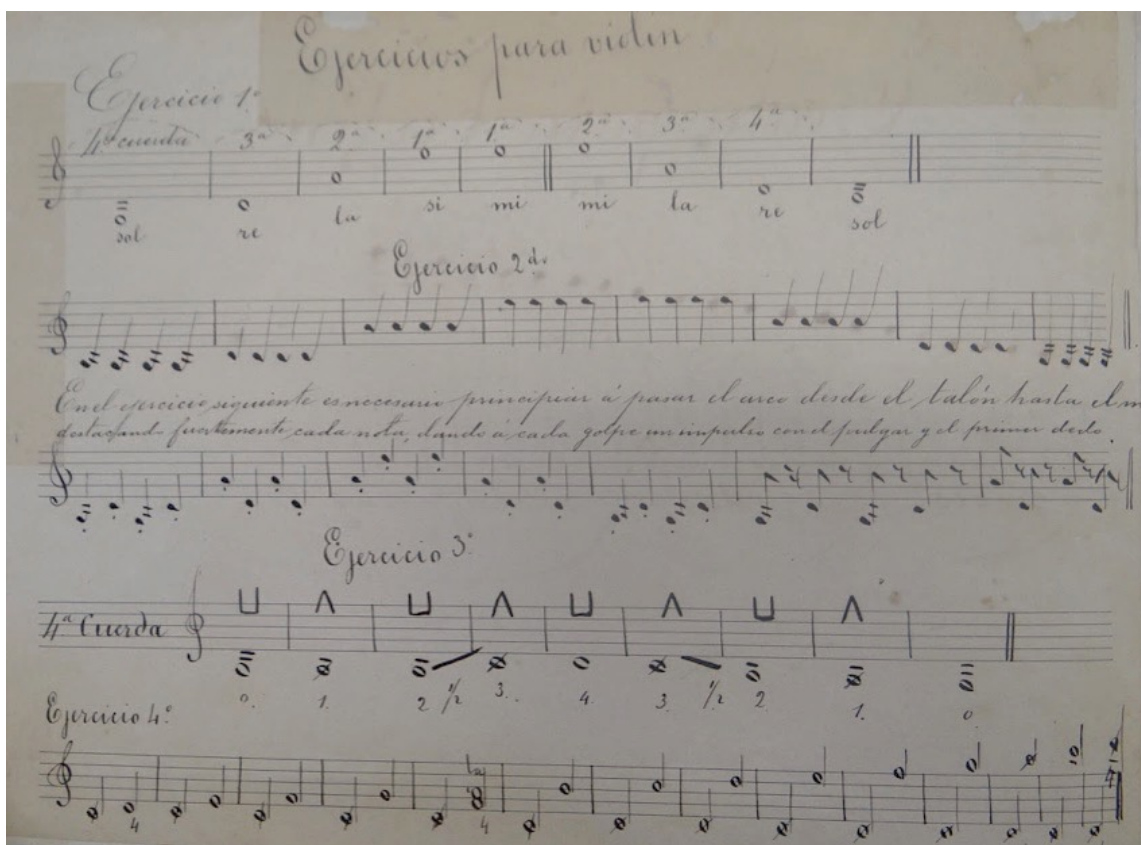 Ejercicios para violin
Ejercicio 1º
4ª cuerda 3ª 2ª 1ª 1ª 2ª 3ª 4ª
sol re la si mi mi la re sol
Ejercicio 2do
En el ejercicio siguiente es necesario principiar á pasar el arco desde el talón hasta el m
destacando fuertemente cada nota, dando á cada golpe un impulso con el pulgar y el primer dedo.
Ejercicio 3º
4ª Cuerda
0. 1. 2 1/2 3. 4. 3. 1/2 2 1. 0
Ejercicio 4º
4 4